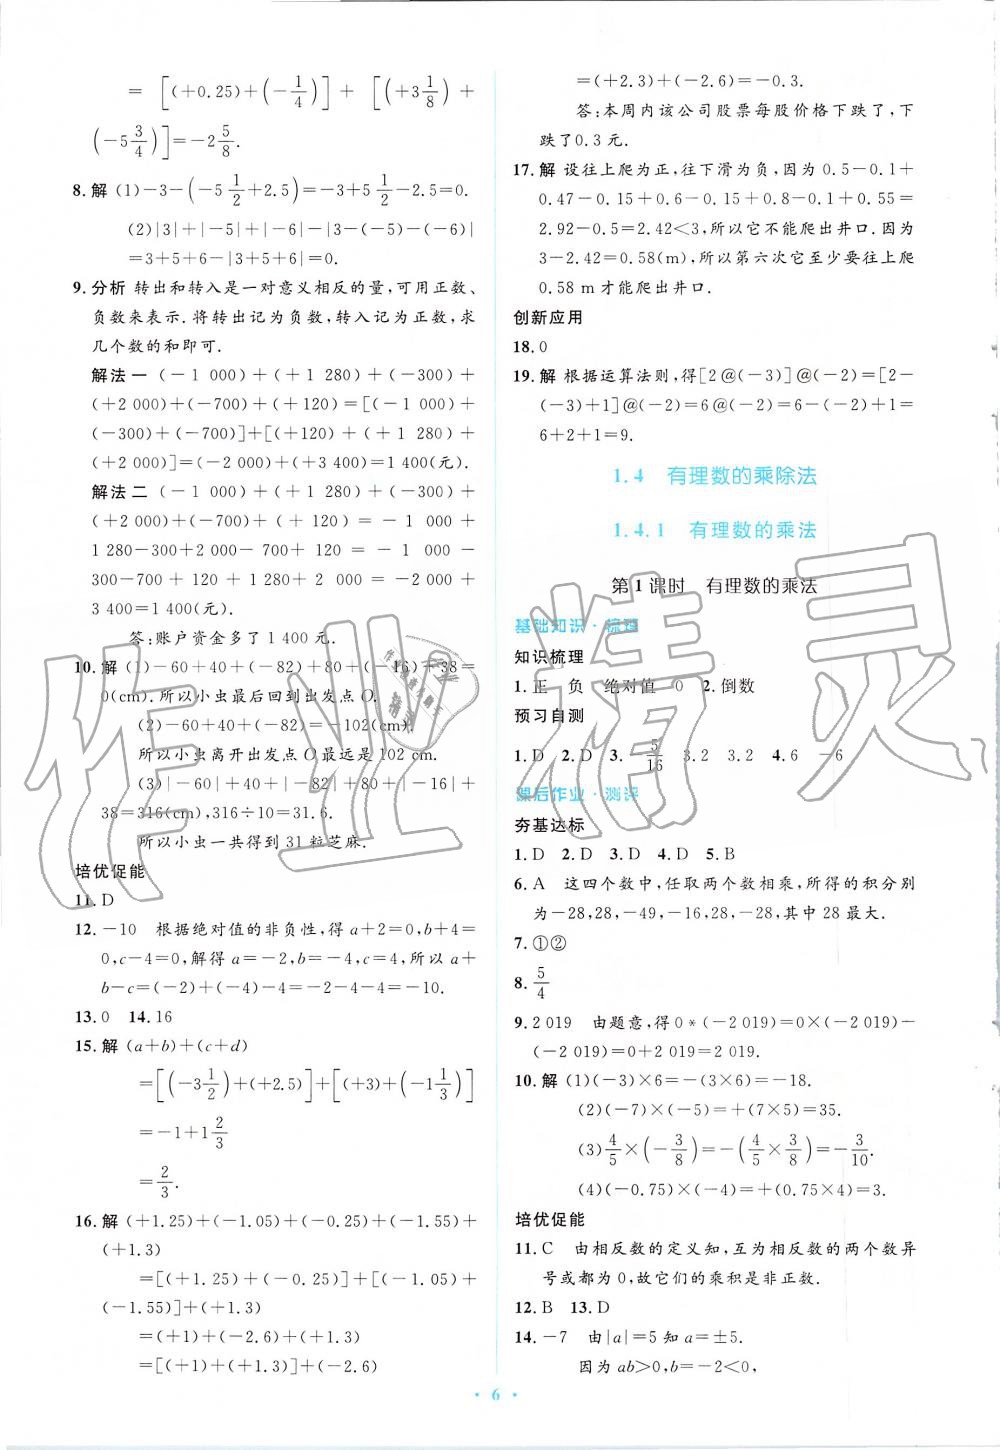 = [(+0.25)+(-1/4)] + [(+3 1/8) +
(-5 3/4)]=-2 5/8.
8.解 (1)-3-(-5 1/2+2.5)=-3+5 1/2-2.5=0.
(2)|3|+|-5|+|-6|-|3-(-5)-(-6)|
=3+5+6-|3+5+6|=0.
9.分析 转出和转入是一对意义相反的量,可用正数、
负数来表示.将转出记为负数,转入记为正数,求
几个数的和即可.
解法一 (-1 000)+(+1 280)+(-300)+
(+2 000)+(-700)+(+120)=[(-1 000)+
(-300)+(-700)]+[(+120)+(+1 280)+
(+2 000)]=(-2 000)+(+3 400)=1 400(元).
解法二 (-1 000)+(+1 280)+(-300)+
(+2 000)+(-700)+(+120)=-1 000+
1 280-300+2 000-700+120=-1 000-
300-700+1 280+2 000+120=-2 000+
3 400=1 400(元).
答:账户资金多了1 400元.
10.解 (1)-60+40+(-80)+80+(-16)+38=
0(cm).所以小虫最后回到出发点O.
(2)-60+40+(-82)=-102(cm),
所以小虫离开出发点O最远是102 cm.
(3)|-60|+40+|-82|+80+|-16|+
38=316(cm),316÷10=31.6.
所以小虫一共得到31粒芝麻.
培优促能
11.D
12.-10 根据绝对值的非负性,得a+2=0,b+4=
0,c-4=0,解得a=-2,b=-4,c=4,所以a+
b-c=(-2)+(-4)-4=-2-4-4=-10.
13.0 14.16
15.解 (a+b)+(c+d)
=[(-3 1/2)+(+2.5)]+[(+3)+(-1 1/3)]
=-1+1 2/3
=2/3.
16.解 (+1.25)+(-1.05)+(-0.25)+(-1.55)+
(+1.3)
=[(+1.25)+(-0.25)]+[(-1.05)+
(-1.55)]+(+1.3)
=(+1)+(-2.6)+(+1.3)
=[(+1)+(+1.3)]+(-2.6)
=(+2.3)+(-2.6)=-0.3.
答:本周内该公司股票每股价格下跌了,下
跌了0.3元.
17.解 设往上爬为正,往下滑为负,因为0.5-0.1+
0.47-0.15+0.6-0.15+0.8-0.1+0.55=
2.92-0.5=2.42<3,所以它不能爬出井口.因为
3-2.42=0.58(m),所以第六次它至少要往上爬
0.58 m才能爬出井口.
创新应用
18.0
19.解 根据运算法则,得[2@(-3)]@(-2)=[2-
(-3)+1]@(-2)=6@(-2)=6-(-2)+1=
6+2+1=9.
1.4 有理数的乘除法
1.4.1 有理数的乘法
第1课时 有理数的乘法
基础知识·梳理
知识梳理
1.正 负 绝对值 0 2.倒数
预习自测
1.D 2.D 3.-5/16 3.2 3.2 4.6 -6
课后作业·测评
夯基达标
1.D 2.D 3.D 4.D 5.B
6.A 这四个数中,任取两个数相乘,所得的积分别
为-28,28,-49,-16,28,-28,其中28最大.
7.①②
8.5/4
9.2 019 由题意,得0*(-2 019)=0×(-2 019)-
(-2 019)=0+2 019=2 019.
10.解 (1)(-3)×6=-(3×6)=-18.
(2)(-7)×(-5)=+(7×5)=35.
(3)4/5×(-3/8)=-(4/5×3/8)=-3/10.
(4)(-0.75)×(-4)=+(0.75×4)=3.
培优促能
11.C 由相反数的定义知,互为相反数的两个数异
号或都为0,故它们的乘积是非正数.
12.B 13.D
14.-7 由|a|=5知a=±5.
因为ab>0,b=-2<0,
· 6 ·
作业精灵